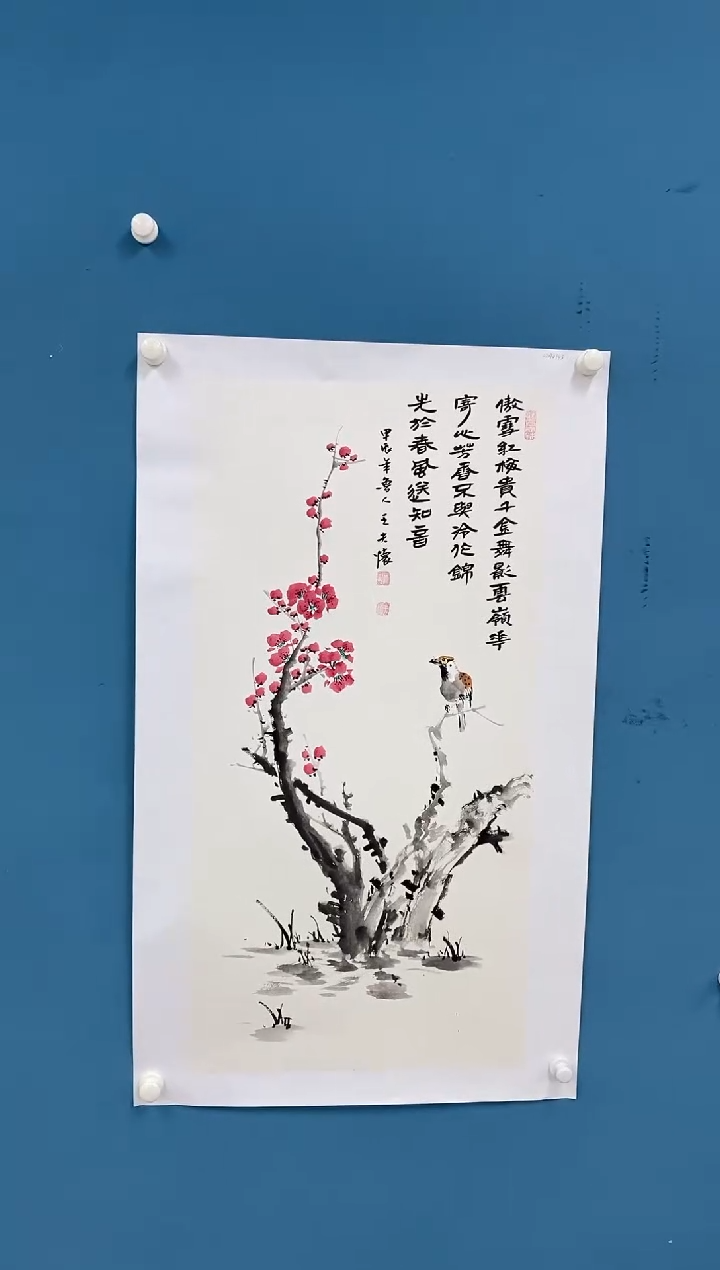 傲雪紅梅貴千金舞影雲嶺華
寄心芳香不與冷作錦
光於春風送知音
甲辰年魯人王光懷